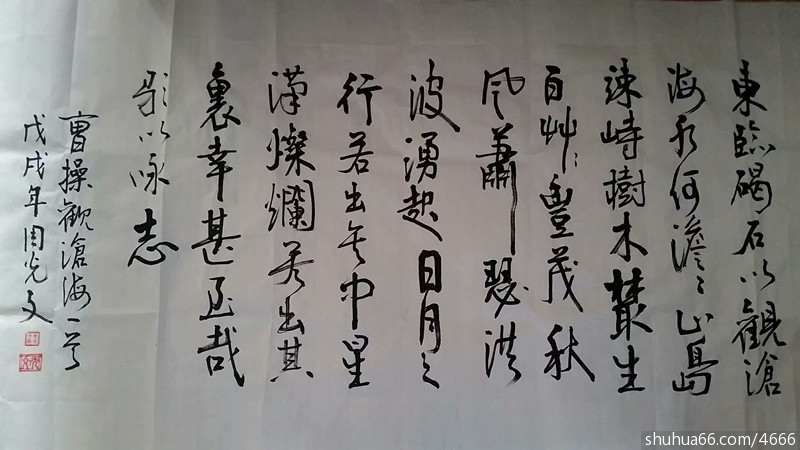 東臨碣石以觀滄
海水何澹々山島
竦峙樹木叢生
百艸豐茂秋
風蕭瑟洪
波湧起日月之
行若出其中星
漢燦爛若出其
裏幸甚至哉
歌以咏志
曹操觀滄海一首
戊戌年周光文
shuhua66.com/4666